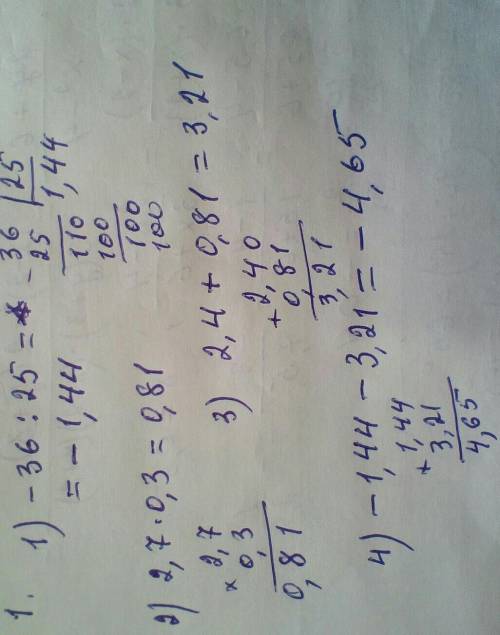 1.
1) -36 : 25 = - 36 | 25
25 1,44
110
100
100
100
= - 1,44
2) 2,7 · 0,3 = 0,81
× 2,7
0,3
0,81
3) 2,4 + 0,81 = 3,21
+ 2,40
0,81
3,21
4) - 1,44 - 3,21 = - 4,65
+ 1,44
3,21
4,65